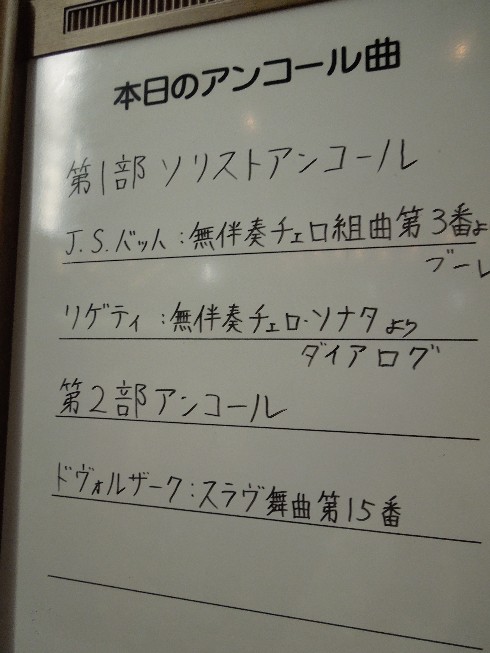 本日のアンコール曲
第1部 ソリストアンコール
J.S.バッハ:無伴奏チェロ組曲第3番よ
ブーレ
リゲティ:無伴奏チェロ・ソナタより
ダイアログ
第2部アンコール
ドヴォルザーク:スラヴ舞曲第15番